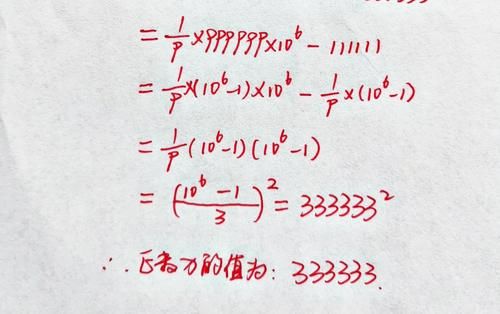 = 1/9 × 999999 × 10⁶ - 111111
= 1/9 × (10⁶-1) × 10⁶ - 1/9 × (10⁶-1)
= 1/9 (10⁶-1)(10⁶-1)
= ((10⁶-1)/3)² = 333333²
∴ 正
的值为: 333333.